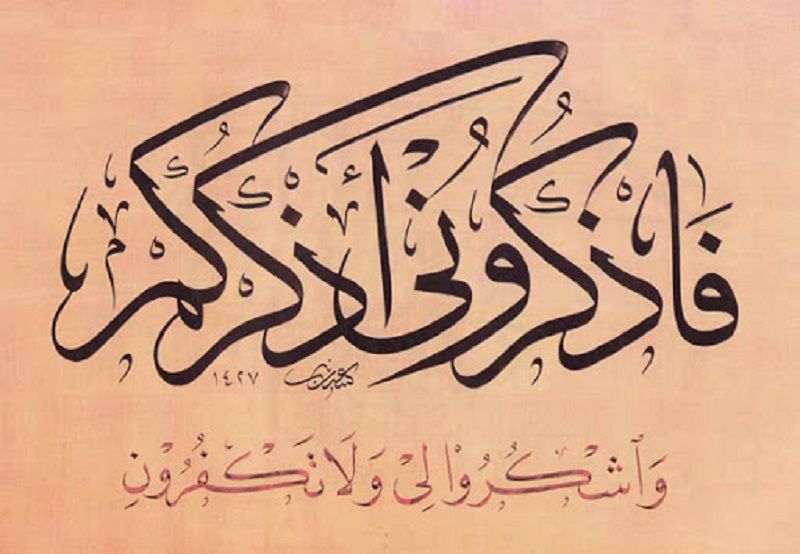 فَاذْكُرُونِي أَذْكُرْكُمْ
١٤٢٧
وَٱشْكُرُوا لِي وَلَا تَكْفُرُونِ